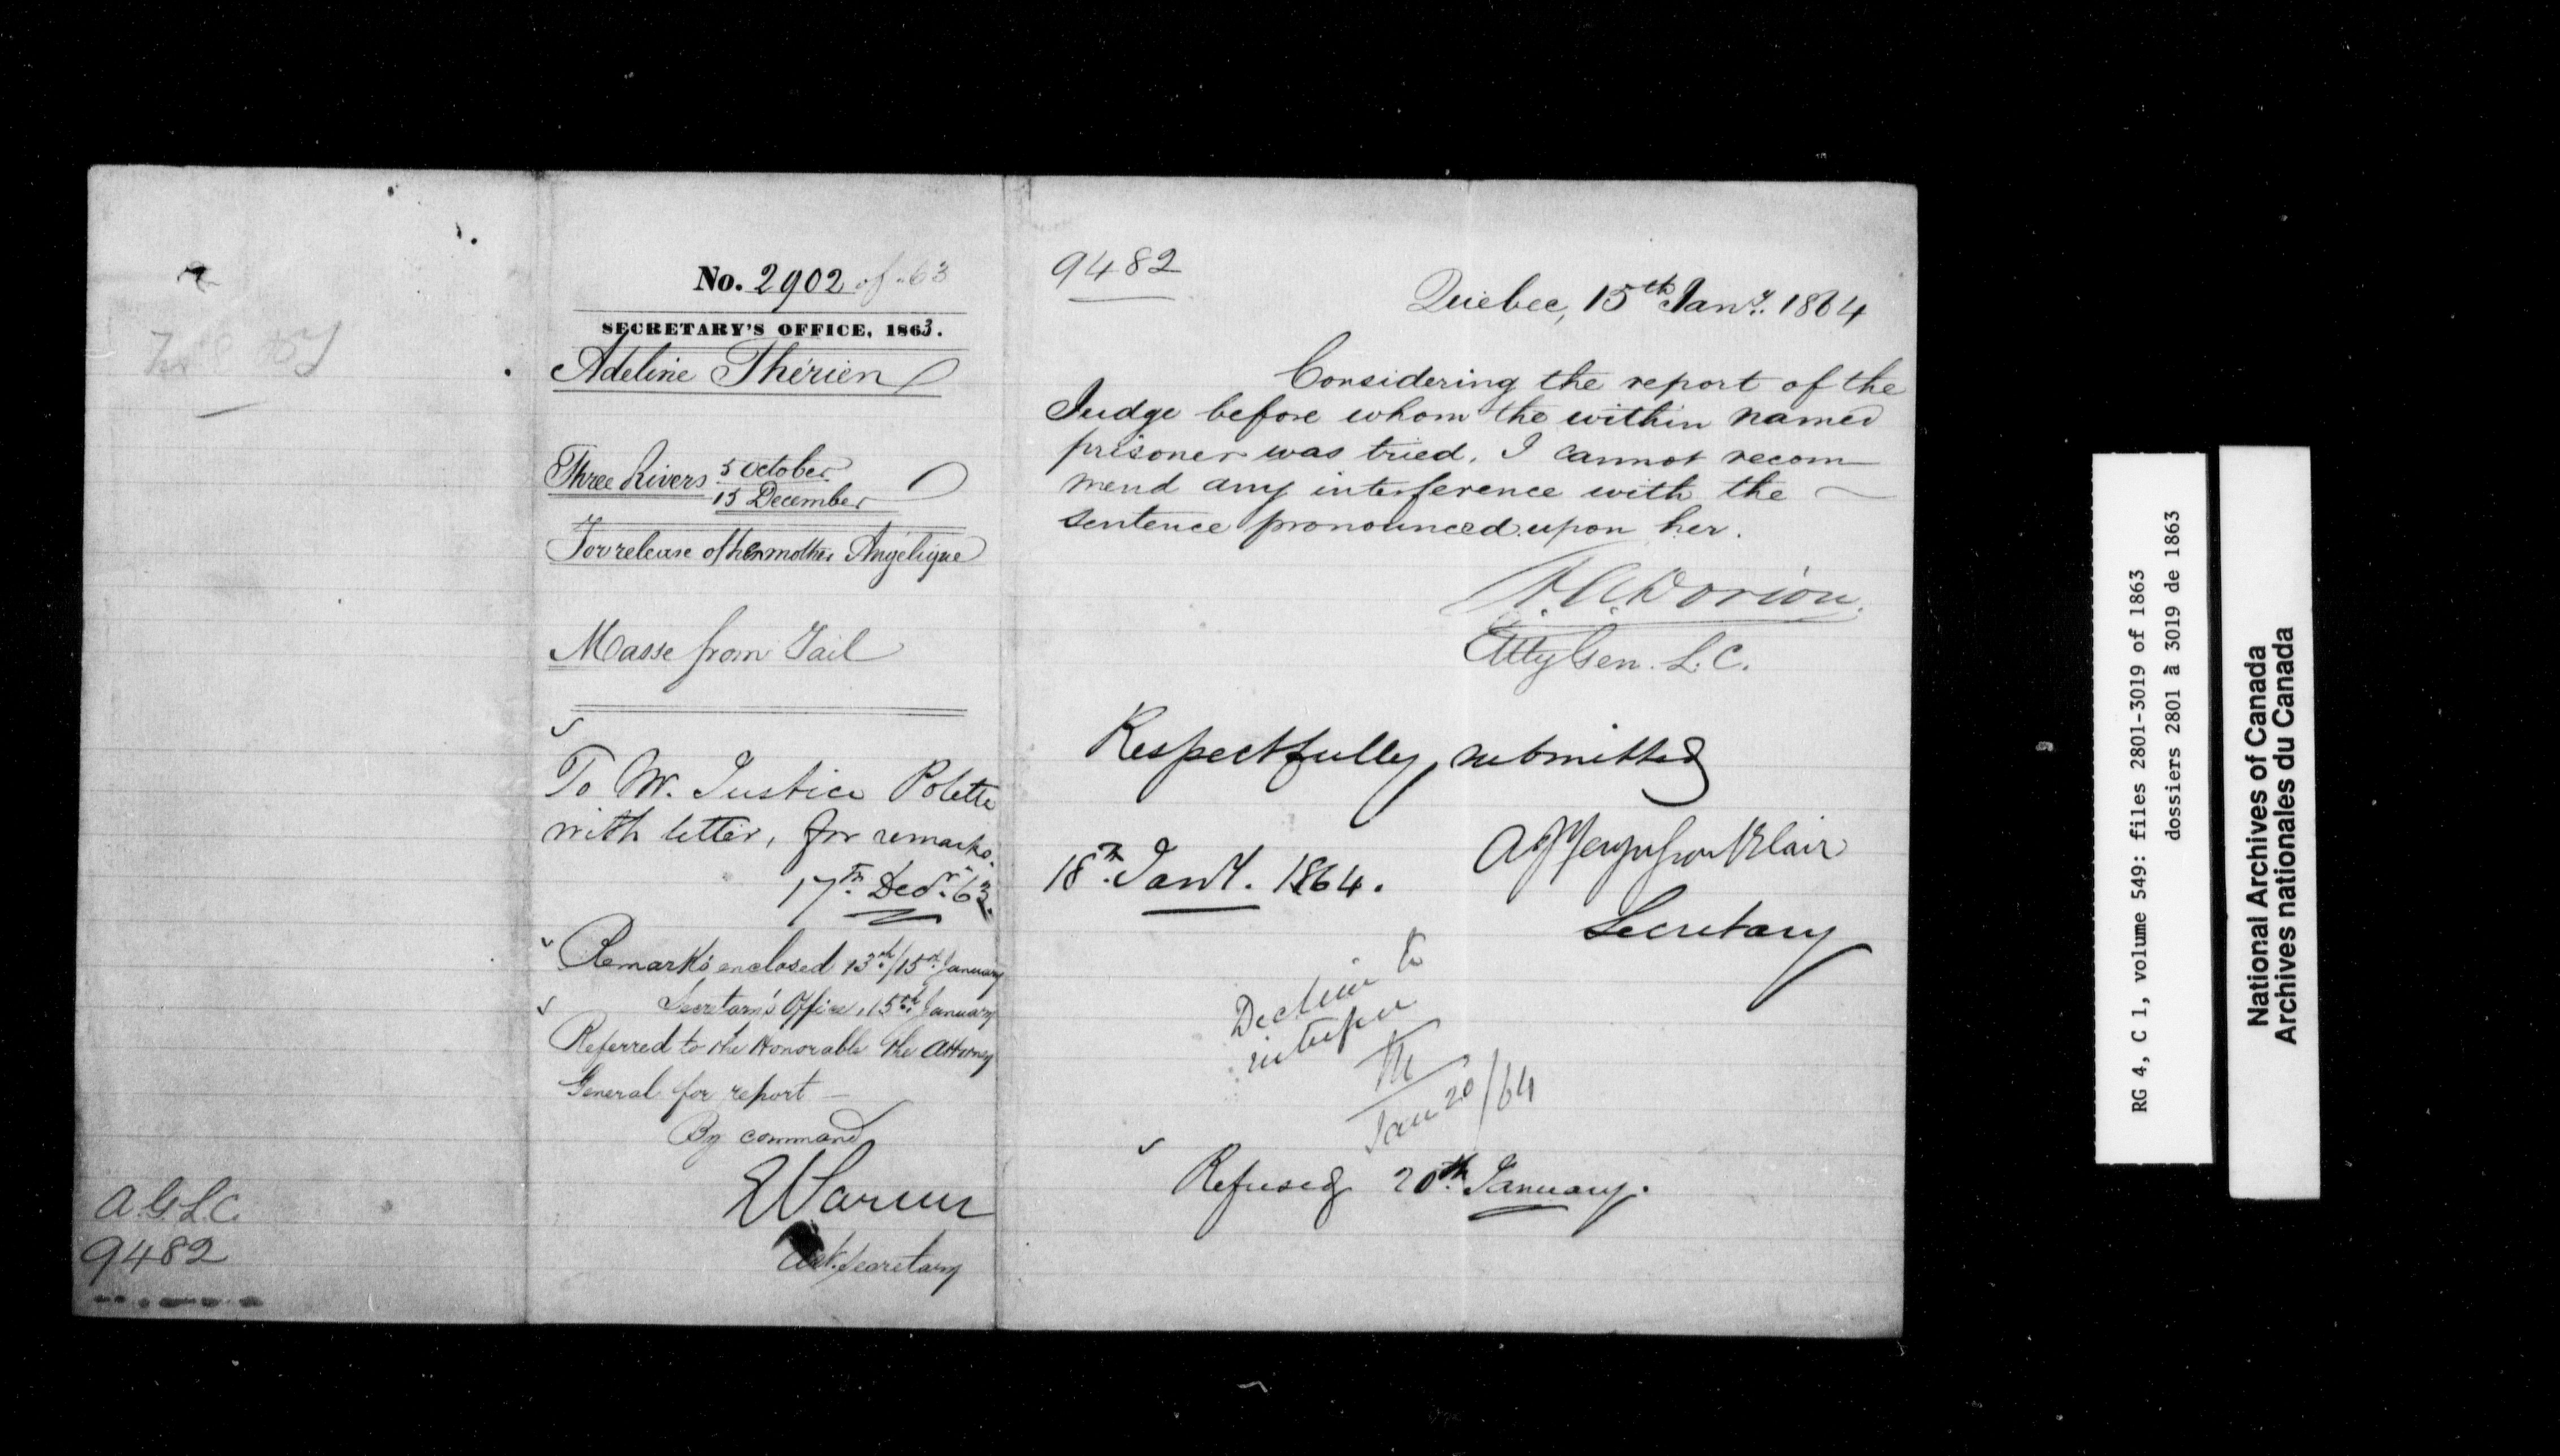 A.G.L.C.
9482
No. 2902 of 63
SECRETARY'S OFFICE, 1863.
Adeline Thérien
Three Rivers 5 October
15 December
For release of her mother Angelique
Masse from Jail
To Mr. Justice Polette
with letter, for remarks.
17th Decr. 63.
Remarks enclosed 13th/15th January
Secretary's Office, 15th January
Referred to the Honorable the Attorney
General for report —
By command
Asst. Secretary
9482
Quebec, 15th Jany. 1864
Considering the report of the
Judge before whom the within named
prisoner was tried. I cannot recom
mend any interference with the
sentence pronounced upon her.
A.A. Dorion.
Atty Gen. L.C.
Respectfully submitted
A J Fergusson Blair
18th Jany. 1864.
Secretary
Decline to
interfere
M
Jan 20/64
Refused 20th January.
RG 4, C 1, volume 549: files 2801-3019 of 1863
dossiers 2801 à 3019 de 1863
National Archives of Canada
Archives nationales du Canada